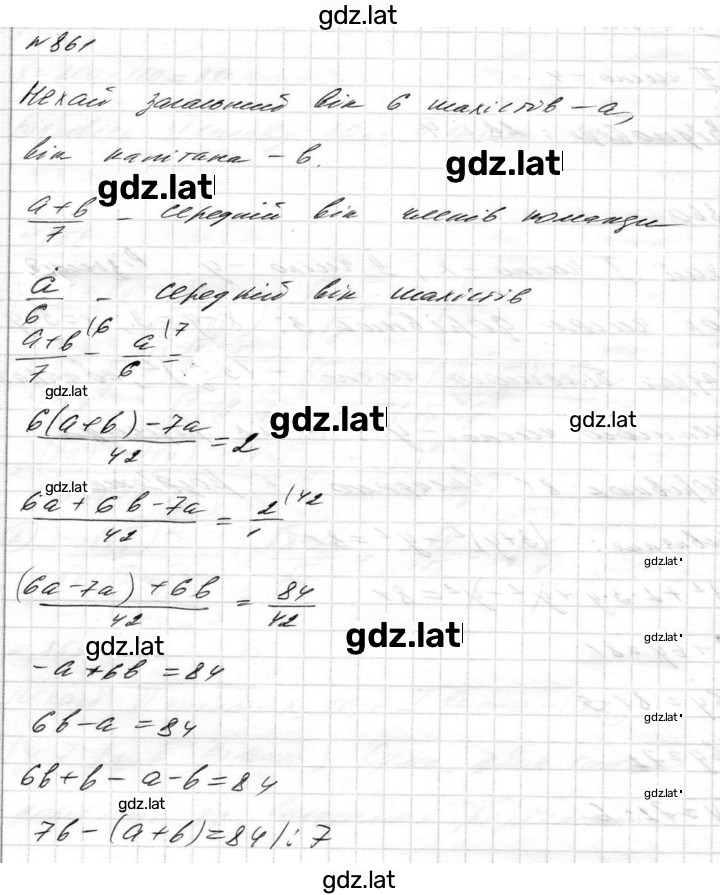 gdz.lat
№861
Нехай загальний вік 6 шахістів – a,
вік капітана – b.
gdz.lat
gdz.lat
(a+b)/7 – середній вік членів команди
a/6 – середній вік шахістів
(a+b)/7 (6 – a/6 (7 =
gdz.lat
(6(a+b)–7a)/42 = 2
gdz.lat
gdz.lat
gdz.lat
(6a+6b–7a)/42 = 2/1 (42
gdz.lat
((6a–7a)+6b)/42 = 84/42
gdz.lat
gdz.lat
gdz.lat
–a+6b=84
6b–a=84
gdz.lat
6b+b–a–b=84
gdz.lat
gdz.lat
7b–(a+b)=84/:7
gdz.lat